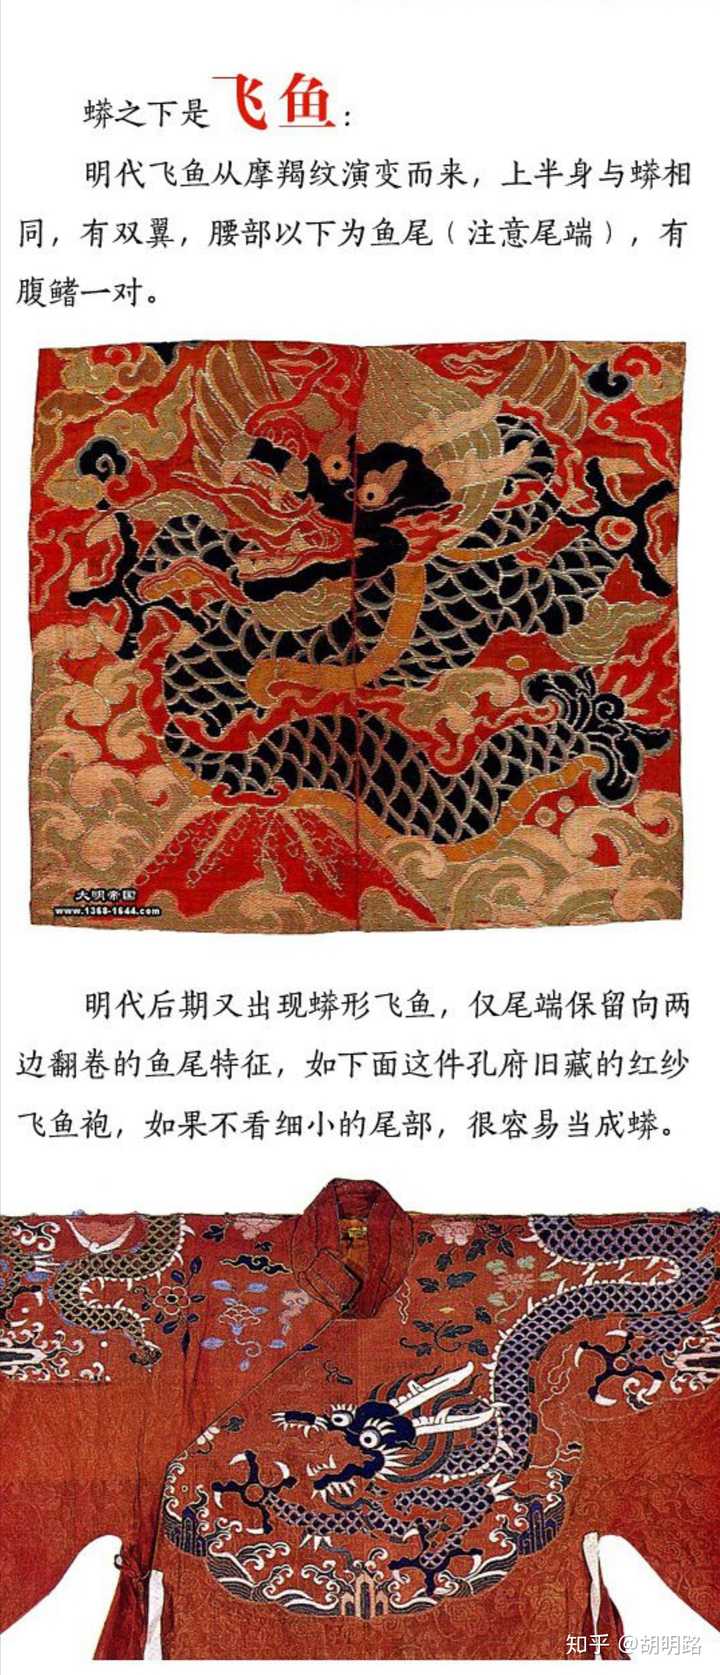 蟒之下是飞鱼：
明代飞鱼从摩羯纹演变而来，上半身与蟒相
同，有双翼，腰部以下为鱼尾（注意尾端），有
腹鳍一对。
大明帝国
www.1368-1644.com
明代后期又出现蟒形飞鱼，仅尾端保留向两
边翻卷的鱼尾特征，如下面这件孔府旧藏的红纱
飞鱼袍，如果不看细小的尾部，很容易当成蟒。
知乎 @胡明路